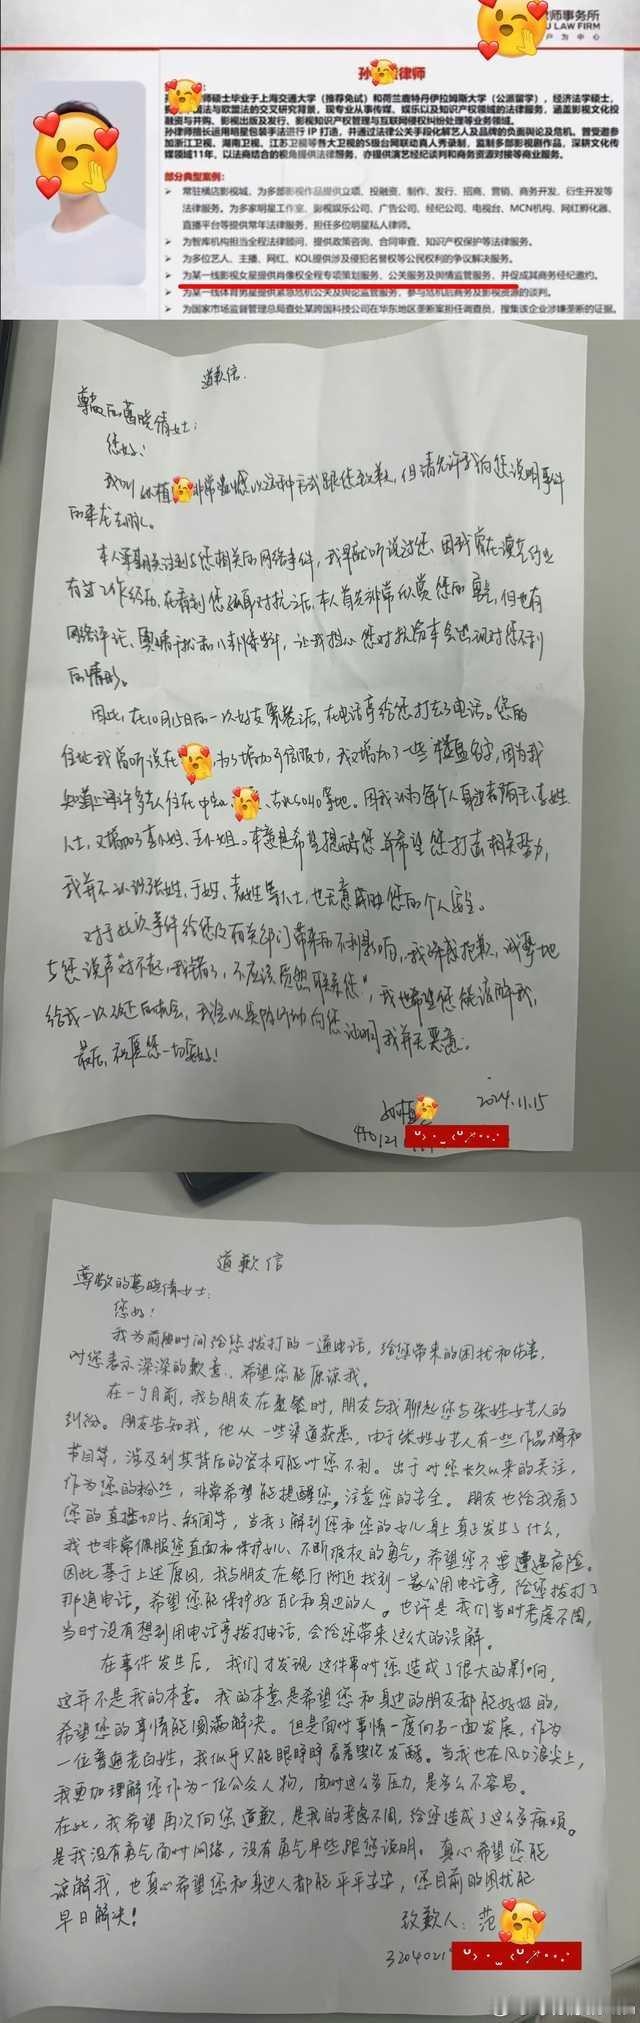 律师事务所
U LAW FIRM
户 为 中 心
孙 律师
师硕士毕业于上海交通大学（推荐免试）和荷兰鹿特丹伊拉姆斯大学（公派留学），经济法学硕士，
法与欧盟法的交叉研究背景，现专业从事传媒、娱乐以及知识产权领域的法律服务，涵盖影视文化投
融资与并购、影视出版及发行、影视知识产权管理与互联网侵权纠纷处理等业务领域。
孙律师擅长运用明星包装手法进行 IP 打造，并通过法律公关手段化解艺人及品牌的负面舆论及危机。曾受邀参
加浙江卫视、湖南卫视、江苏卫视等各大卫视的S级台网联动真人秀录制，监制多部影视剧作品，深耕文化传
媒领域11年，以法商结合的视角提供法律服务，亦提供演艺经纪谈判和商务资源对接等商业服务。
部分典型案例：
常驻横店影视城，为多部影视作品提供立项、投融资、制作、发行、招商、营销、商务开发、衍生开发等
法律服务。为多家明星工作室、影视娱乐公司、广告公司、经纪公司、电视台、MCN机构、网红孵化器、
直播平台等提供常年法律服务，担任多位明星私人律师。
为智库机构担当全程法律顾问，提供政策咨询、合同审查、知识产权保护等法律服务。
为多位艺人、主播、网红、KOL提供涉及侵犯名誉权等公民权利的争议解决服务。
为某一线影视女星提供肖像权全程专项策划服务、公关服务及舆情监管服务，并促成其商务经纪邀约。
为某一线体育男星提供紧急危机公关及舆论监管服务，参与危机后商务及影视资源的谈判。
为国家市场监督管理总局查处某跨国科技公司在华东地区垄断案担任调查员，搜集该企业涉嫌垄断的证据。
道歉信
尊敬的葛晓倩女士：
您好！
我叫孙植 非常遗憾以这种方式跟您致歉，但请允许我向您说明事件
的来龙去脉。
本人 期关注到与您相关的网络事件，我早就听说过您，因我曾在演艺行业
有过工作经历，在看到您 对抗之后，本人首先非常欣赏您的勇气，但也有
网络评论、舆情干扰和八卦爆料，让我担心您对抗后本会出现对您不利
的情形。
因此，在10月15日的一次好友聚餐后，在电话亭给您打去了电话。您的
住址我曾听说在 为了增加可信服力，我又增加了一些楼盘名字，因为我
知道上海许多艺人住在中 、古北SOHO等地。因我认为每个人身边都有王、李姓
人士，又增加了李小姐、王小姐。本意是希望提醒您并希望您打击相关势力，
我并不认识张姓、于姓、袁姓等人士，也无意威胁您的个人安全。
对于此次事件给您及有关部门带来的不利影响，我深感抱歉，诚挚地
与您说声“对不起，我错了，不应该贸然联系您”，我也希望您能谅解我，
给我一次改正的机会，我会以实际行动向您证明我并无恶意。
最后，祝愿您一切安好！
孙植
2024.11.15
440121
道歉信
尊敬的葛晓倩女士：
您好！
我为前段时间给您拨打的一通电话，给您带来的困扰和伤害，
对您表示深深的歉意，希望您能原谅我。
在一个月前，我与朋友在聚餐时，朋友与我聊起您与张姓女艺人的
纠纷。朋友告知我，他从一些渠道获悉，由于张姓女艺人有一些作品播和
节目等，涉及到其背后的资本可能对您不利。出于对您长久以来的关注，
作为您的粉丝，非常希望能提醒您，注意您的安全。朋友也给我看了
您的直播切片、新闻等，当我了解到您和您的女儿身上真正发生了什么，
我也非常佩服您直面和保护女儿、不断维权的勇气，希望您不要遭遇危险。
因此基于上述原因，我与朋友在餐厅附近找到一家公用电话亭，给您拨打了
那通电话，希望您能保护好自己和身边的人。也许是我们当时考虑不周，
当时没有想到用电话亭拨打电话，会给您带来这么大的误解。
在事件发生后，我们才发现这件事对您造成了很大的影响，
这并不是我的本意。我的本意是希望您和身边的朋友都能好好的，
希望您的事情能圆满解决。但是面对事情一度向另一面发展，作为
一位普通老百姓，我似乎只能眼睁睁看着舆论发酵。当我也在风口浪尖上，
我更加理解您作为一位公众人物，面对这么多压力，是多么不容易。
在此，我希望再次向您道歉，是我的考虑不周，给您造成了这么多麻烦。
是我没有勇气面对网络，没有勇气早些跟您说明。真心希望您能
谅解我，也真心希望您和身边人都能平平安安，您目前的困扰能
早日解决！
致歉人：范
3204021